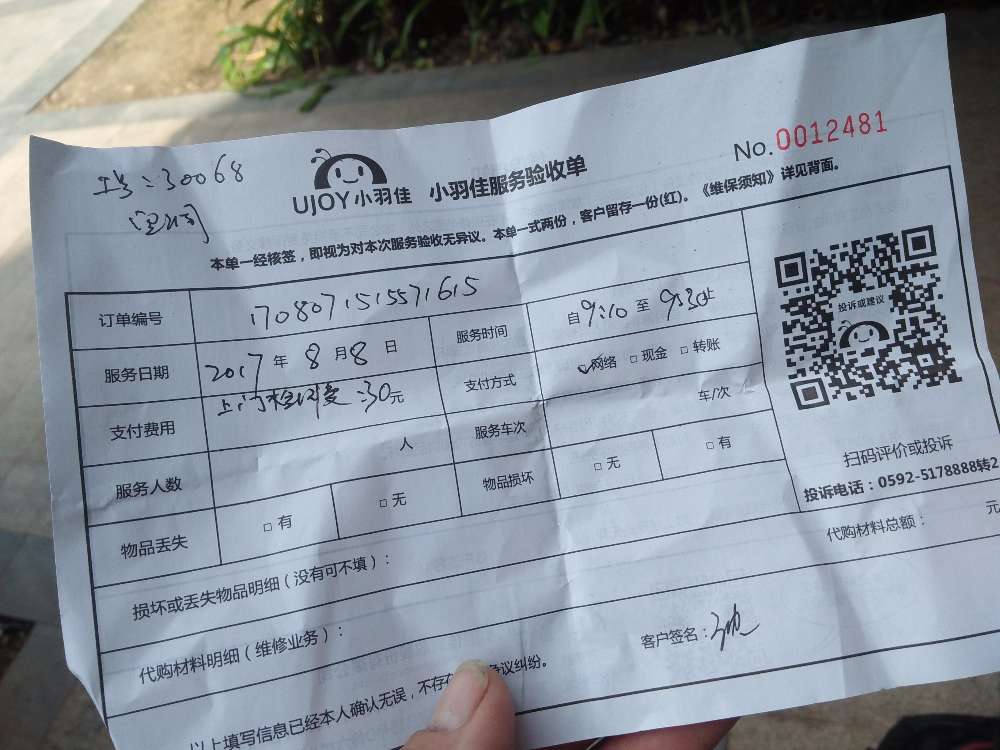 工号:30068
UJOY小羽佳 小羽佳服务验收单
No.0012481
本单一经核签，即视为对本次服务验收无异议。本单一式两份，客户留存一份(红)。《维保须知》详见背面。
订单编号 1708071515571615
服务日期 2017年8月8日 服务时间 自9:10至9:30止
支付费用 上门检测费:30元 支付方式 网络 现金 转账
服务人数 人 服务车次 车/次
物品丢失 有 无 物品损坏 无 有
投诉或建议
扫码评价或投诉
投诉电话：0592-5178888转2
损坏或丢失物品明细（没有可不填）：
代购材料总额： 元
代购材料明细（维修业务）：
客户签名：
以上填写信息已经本人确认无误，不存在 争议纠纷。